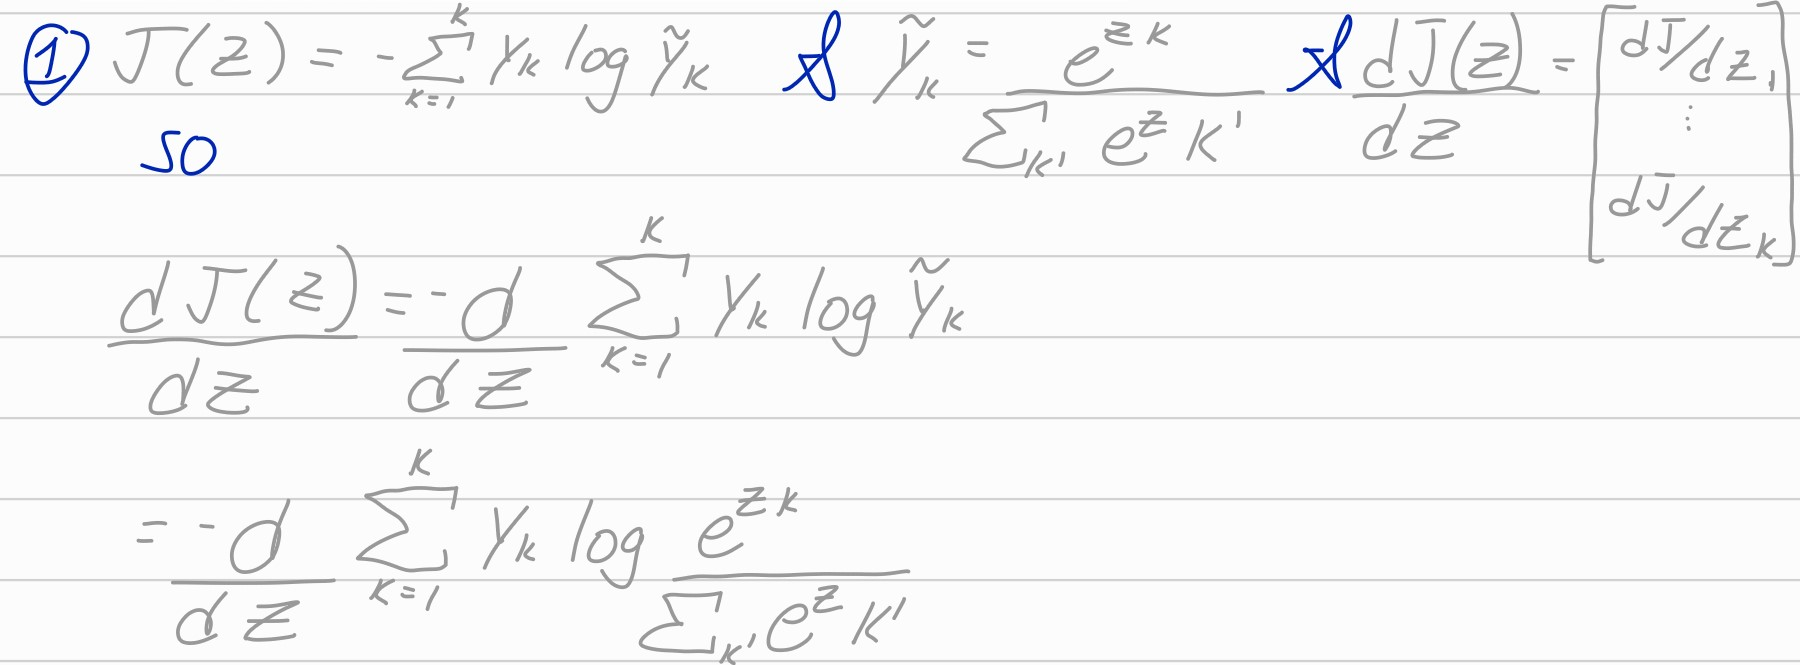 ① J(z) = - ∑_{k=1}^{K} y_k log ỹ_k & ỹ_k = e^{z_k} / ∑_{k'} e^{z_{k'}} & dJ(z)/dz = [dJ/dz_1 ⋮ dJ/dz_K]
so
dJ(z)/dz = - d/dz ∑_{k=1}^{K} y_k log ỹ_k
= - d/dz ∑_{k=1}^{K} y_k log e^{z_k} / ∑_{k'} e^{z_{k'}}